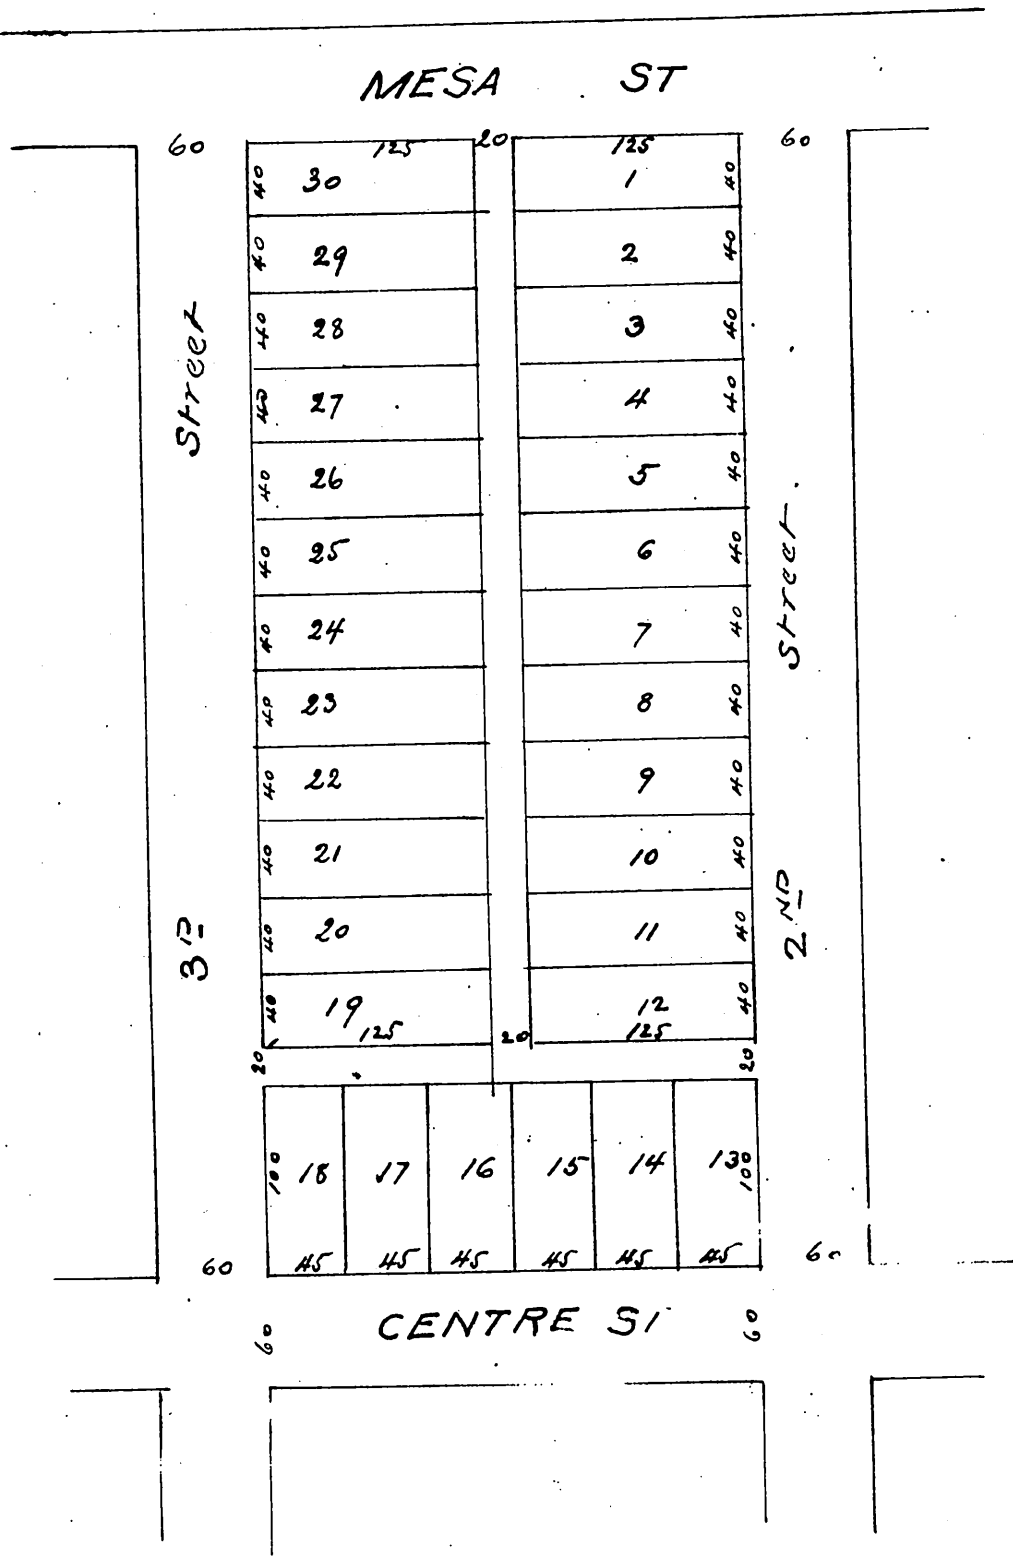 MESA ST
60 125 20 125 60
40 30 1 40
40 29 2 40
40 28 3 40
40 27 4 40
40 26 5 40
40 25 6 40
40 24 7 40
40 23 8 40
40 22 9 40
40 21 10 40
40 20 11 40
40 19 12 40
125 20 125
20 20
3D Street
2ND Street
100 18 17 16 15 14 13 100
60 45 45 45 45 45 45 60
CENTRE ST
60 60